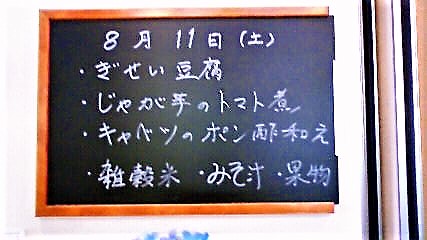 8月11日(土)
・ぎせい豆腐
・じゃが芋のトマト煮
・キャベツのポン酢和え
・雑穀米 ・みそ汁 ・果物